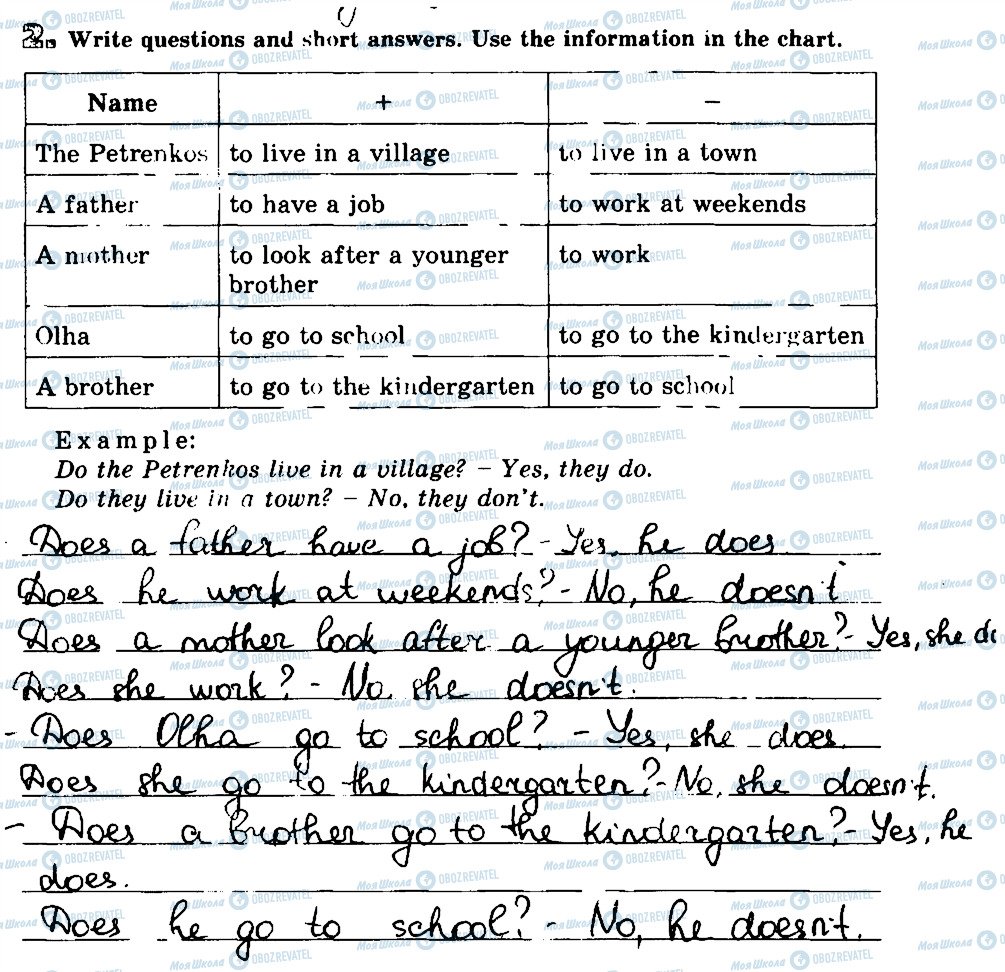 2. Write questions and short answers. Use the information in the chart.
Name + –
The Petrenkos to live in a village to live in a town
A father to have a job to work at weekends
A mother to look after a younger to work
brother
Olha to go to school to go to the kindergarten
A brother to go to the kindergarten to go to school
Example:
Do the Petrenkos live in a village? – Yes, they do.
Do they live in a town? – No, they don't.
Does a father have a job? - Yes, he does
Does he work at weekends? - No, he doesn't
Does a mother look after a younger brother? - Yes, she do
Does she work? - No, she doesn't.
- Does Olha go to school? - Yes, she does.
Does she go to the kindergarten? - No, she doesn't.
- Does a brother go to the kindergarten? - Yes, he
does.
Does he go to school? - No, he doesn't.
Моя Школа OBOZREVATEL